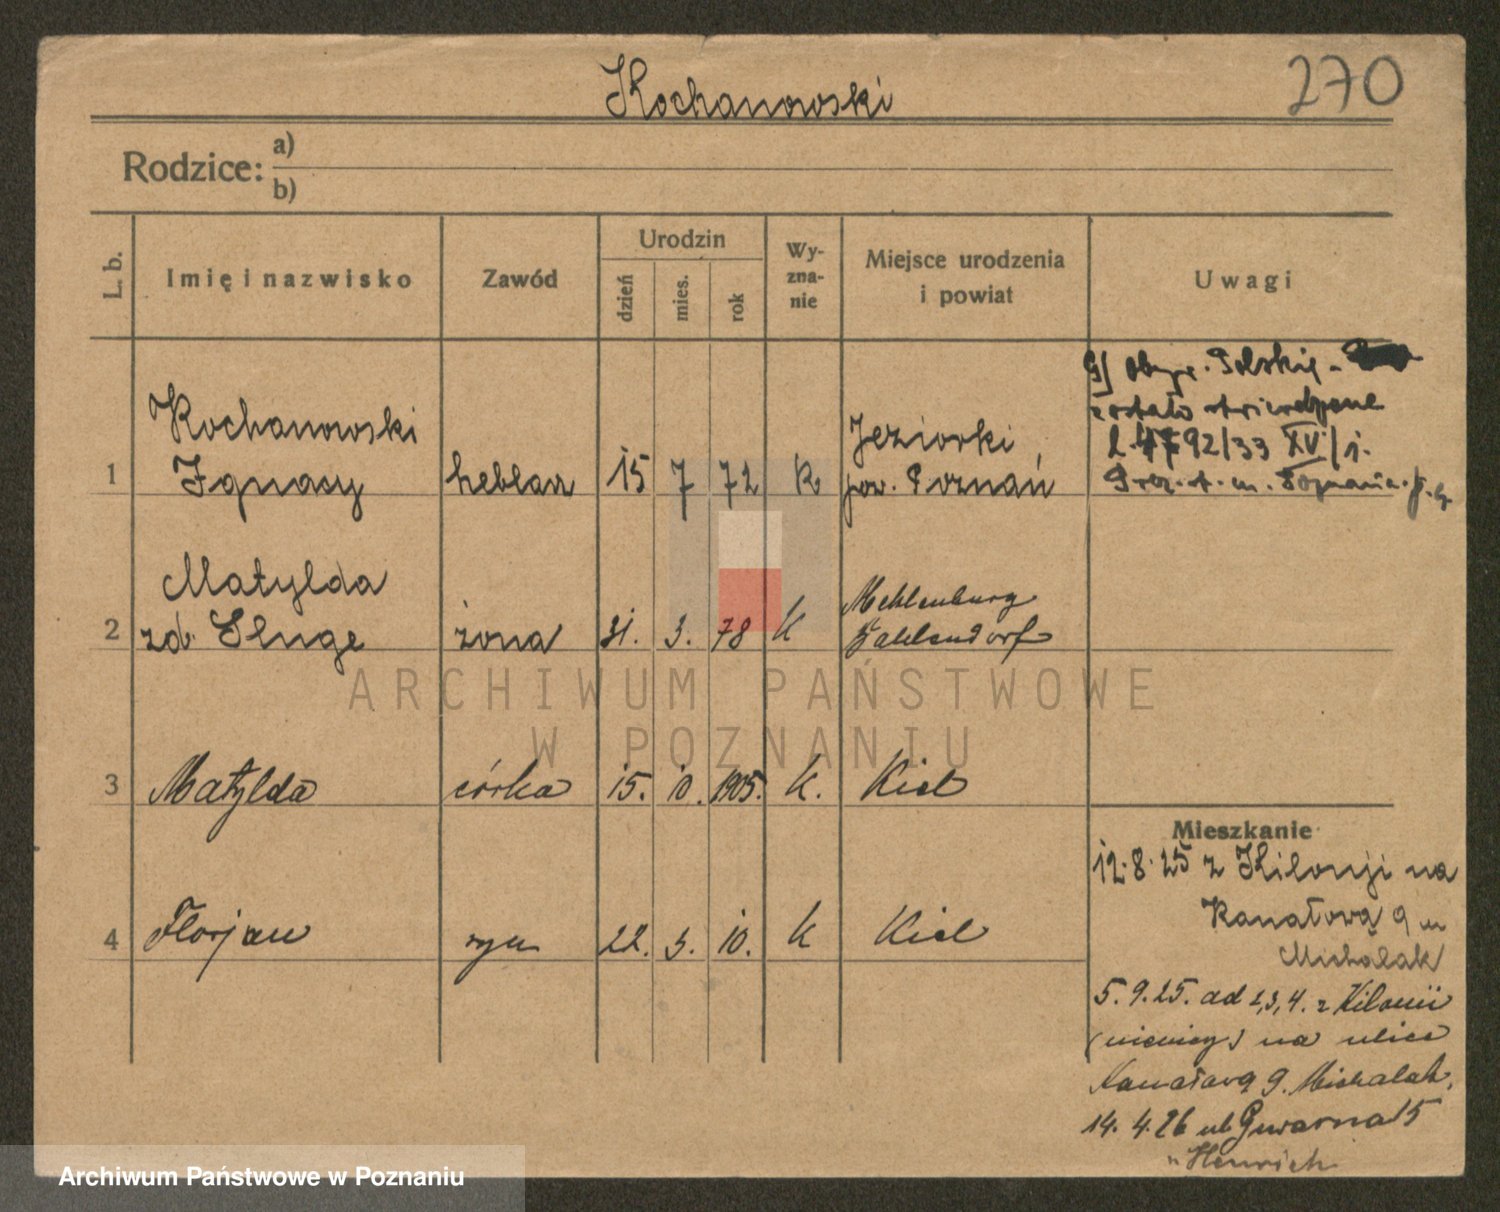 Kochanowski
270
Rodzice: a)
b)
L. b.
Imię i nazwisko
Zawód
Urodzin
dzień
mies.
rok
Wy-
zna-
nie
Miejsce urodzenia
i powiat
Uwagi
1
Kochanowski
Ignacy
heblarz
15 7 72
K
Jeziorki
pow. Poznań
obyw. Polskie
zostało stwierdzone
L. 4792/33 XV/1.
Prez. st. m. Poznania
2
Matylda
zd. Sluge
żona
31. 3. 78
K
Meklenburg
3
Matylda
córka
15. 10. 1905.
K.
Kiel
4
Florjan
syn
22. 3. 10.
K
Kiel
Mieszkanie
12.8.25 z Kilonji na
Kanałową 9 m
Michalak
5.9.25. ad 2,3,4. z Kilonii
(niemcy) na ulice
Kanałową 9. Michalak,
14. 4. 26 ul. Gwarna 15
" Henrich
ARCHIWUM PAŃSTWOWE
W POZNANIU
Archiwum Państwowe w Poznaniu